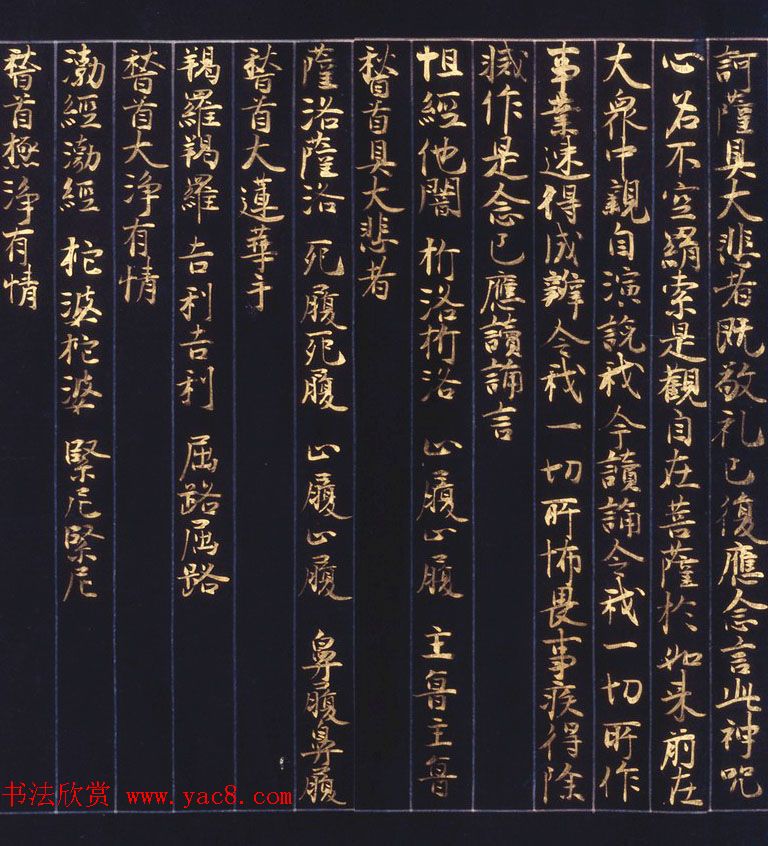 訶薩具大悲者既敬礼已復應念言此神咒
心名不空羂索是觀自在菩薩於如来前在
大衆中親自演說我今讀誦令我一切所作
事業速得成辦令我一切所怖畏事疾得除
滅作是念已應讀誦言
怛經他闇 析洛析洛 止履止履 主魯主魯
稽首具大悲者
薩洛薩洛 死履死履 止履止履 鼻履鼻履
稽首大蓮華手
羯羅羯羅 吉利吉利 屈路屈路
稽首大淨有情
渤經渤經 柁婆柁婆 緊尼緊尼
稽首極淨有情
书法欣赏 www.yac8.com